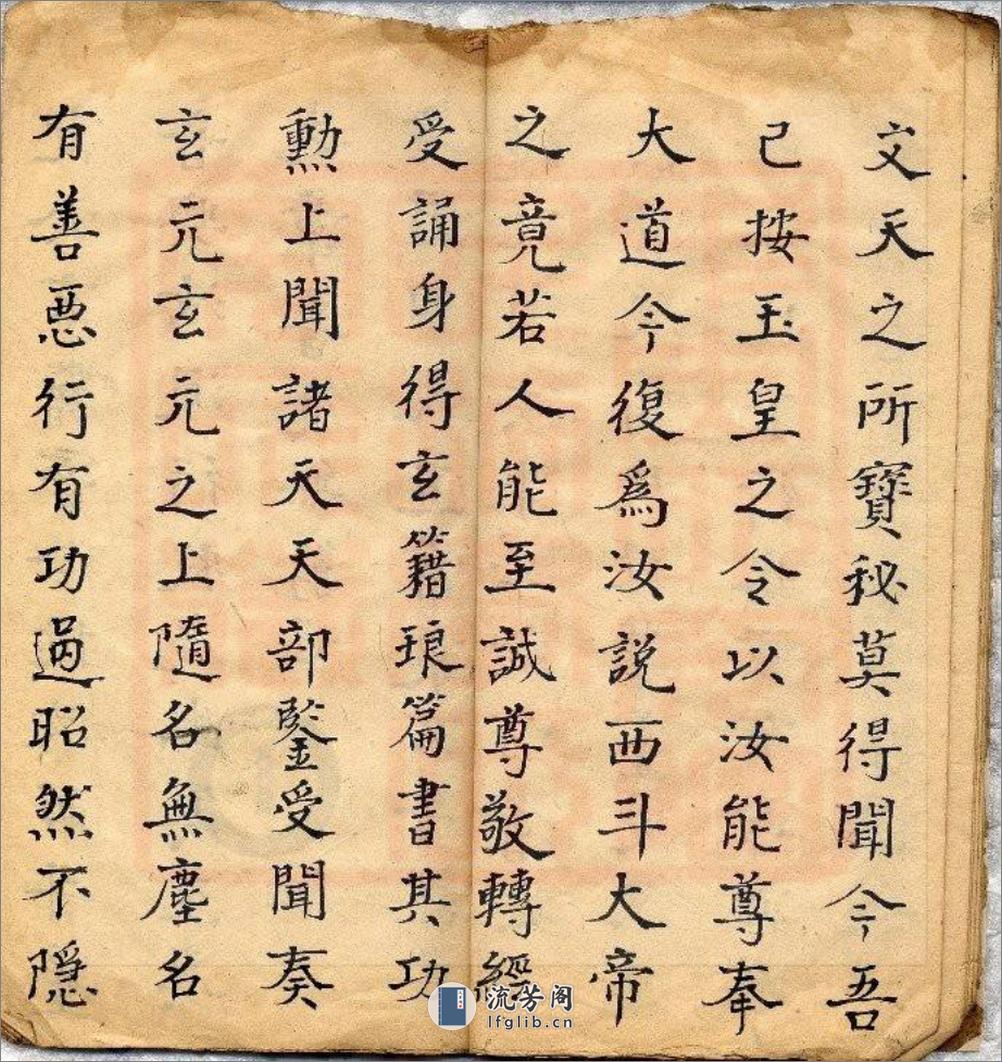 文天之所寳秘莫得聞今吾
已按玉皇之令以汝能尊奉
大道今復爲汝説西斗大帝
之竟若人能至誠尊敬轉經
受誦身得玄籍琅篇書其功
勲上聞諸天天部鑒受聞奏
玄元玄元之上隨名無塵名
有善惡行有功過昭然不隠
流芳阁
lfglib.cn